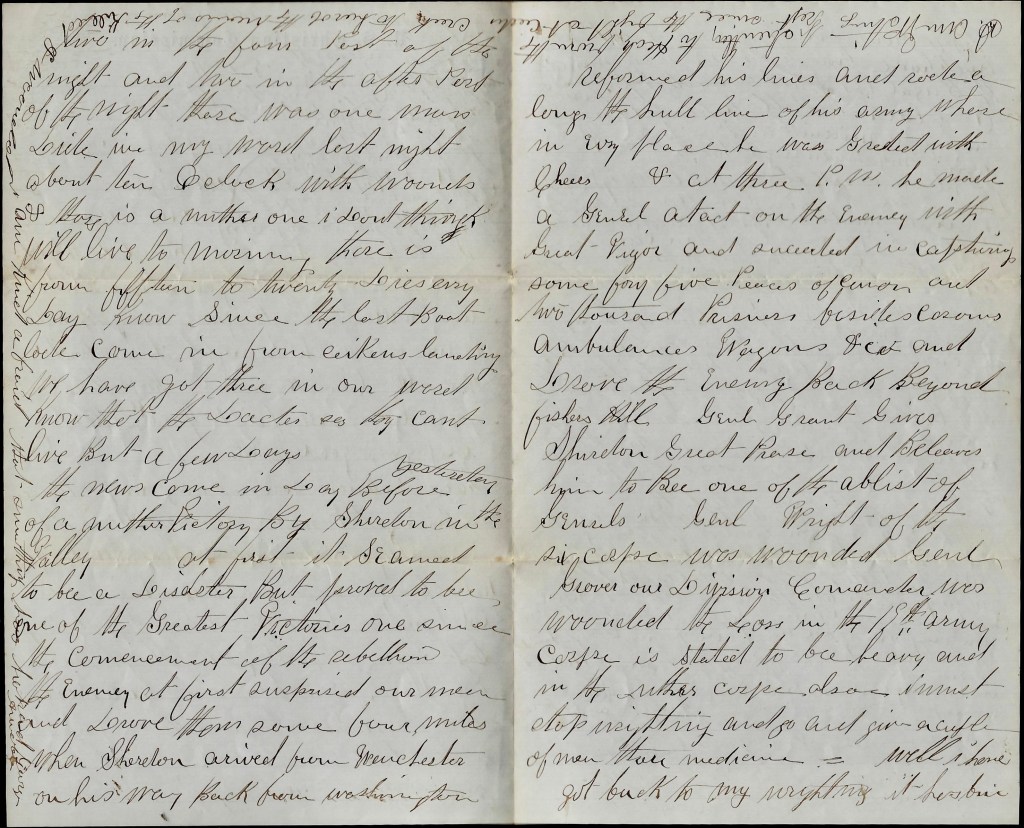 two in the fore Part off the
night and two in the after Part
of the night there was one man
Dide in my word last night
about ten Oclock with woonds
& thare is a nuther one i dont think
will live to morning there is
from fifteen to twenty Dies evry
Day know Since the last Boat
lode come in from landing
we have got three in our word
know that the Docter ses they cant
live But a few Days
the news come in Day Before yesterday
of a nuther Victory By Sheredon in the
Valley at first it Seamed
to bee a Disaster But proved to bee
one of the Greatest Victories one since
the Comencement of the rebellion
the Enemey at first surprised our men
and Drove them some four miles
when Sheredon arived from Wenchester
on his way Back from washington
reformed his lines and rode a
long the hull line of his army Whare
in Evry place he was Greeted with
Cheers & at three P.M. he made
a Generl atact on the Enemey with
Great Vigor and succeded in capturing
some fory five Peaces of Canon and
two thousand Prisners besides casons
Ambulances Wagons &c and
Drove the Enemy Back Beyond
fishers Hill Genl Grant Gives
Shiredon Great Prase and Beleaves
him to Bee one of the ablist of
Generls Genl Wright of the
six corpse was woonded Genl
Grover our Division Comander was
woonded the Loss in the 19th army
Corpse is stated to bee heavy and
in the uther corpse also i must
stop wrighting and go and give a cuple
of men thare medicine = well i have
got back to my wrighting it has bin